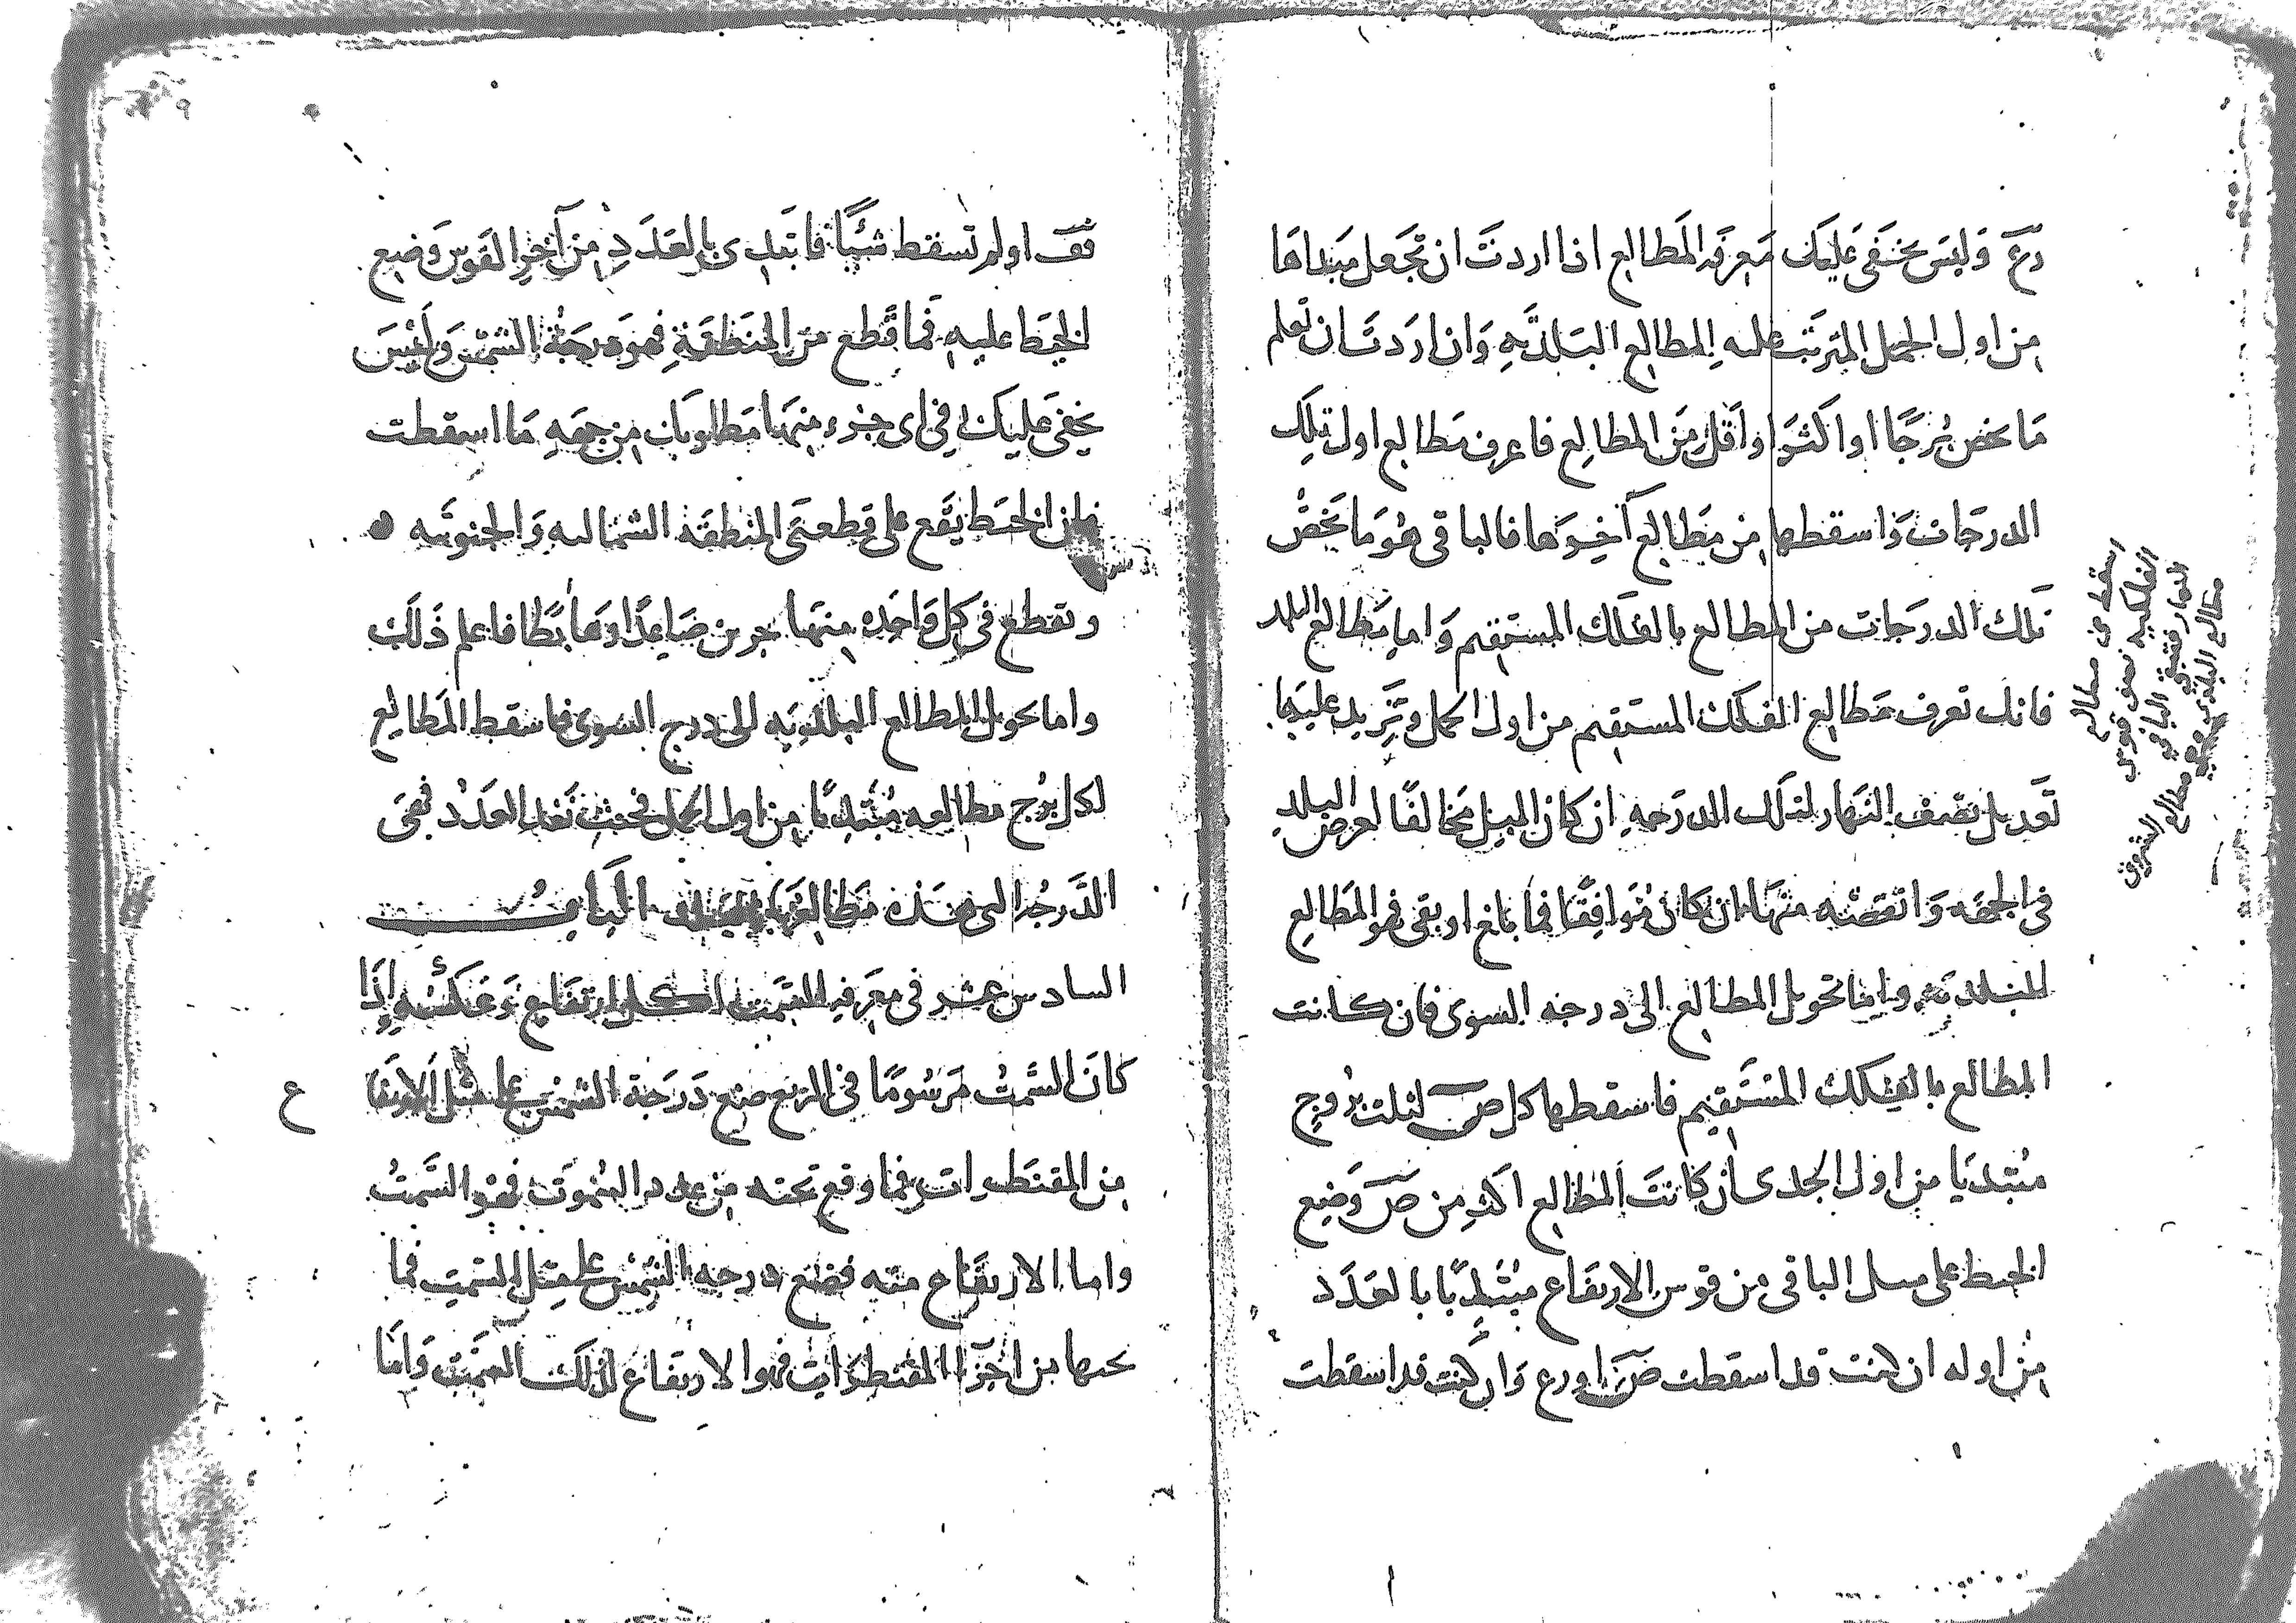 رع وليس يخفى عليك معرفة المطالع اذا اردت ان تجعل مبداها
من اول الحمل المترتب عليه المطالع البلدية وان اردت ان تعلم
ما يخص برجًا او اكثر او اقل من المطالع فاعرف مطالع اول تلك
الدرجات واسقطها من مطالع آخرها فالباقى هو ما يخص
تلك الدرجات من المطالع بالفلك المستقيم واما مطالع البلد
فانك تعرف مطالع الفلك المستقيم من اول الحمل وتزيد عليها
تعديل نصف النهار لتلك الدرجه ان كان الميل مخالفًا لعرض البلد
فى الجهه وانقصه منها ان كان موافقًا فما بلغ او بقى فهو المطالع
البلديه واما تحويل المطالع الى درجه السوى فان كانت
المطالع بالفلك المستقيم فاسقطها كل ص لثلث بروج
مبتديا من اول الجدى ان كانت المطالع اكثر من ص وضع
الخيط على مثل الباقى من قوس الارتفاع مبتديًا بالعدد
من اوله ان كنت قد اسقطت ص او رع وان كنت قد اسقطت
اسقط من مطالع
الفلكيه نصف قوس
النهار فتبقى الباقى
مطالع البلد
مطالع الشروق
قف او لم تسقط شيئًا فابتدى بالعدد من آخر القوس وضع
الخيط عليه فما قطع من المنطقة فهو درجة الشمس وليس
يخفى عليك فى اى جزء منهما مطلوبك من جهه ما اسقطت
فان الخيط يقع على قطعتى المنطقة الشماليه والجنوبيه
وتقطع فى كل واحده منهما جزين صاعدًا وهابطًا فاعلم ذلك
واما تحويل المطالع البلديه الى درج السوى فاسقط المطالع
لكل برج مطالعه مبتديًا من اول الحمل فحيث نفد العدد فهى
الدرجه التى هذه مطالعها الباب
السادس عشر فى معرفة السمت لكل ارتفاع وعكسه واذا
كان السمت مرسومًا فى الربع ضع درجة الشمس على مثل الارتفا
ع
من المقنطرات فما وقع تحته من عدد السموت فهو السمت
واما الارتفاع منه فضع درجه الشمس على مثل السمت فما
تحتها من اجزا المقنطرات فهو الارتفاع لذلك السمت واما